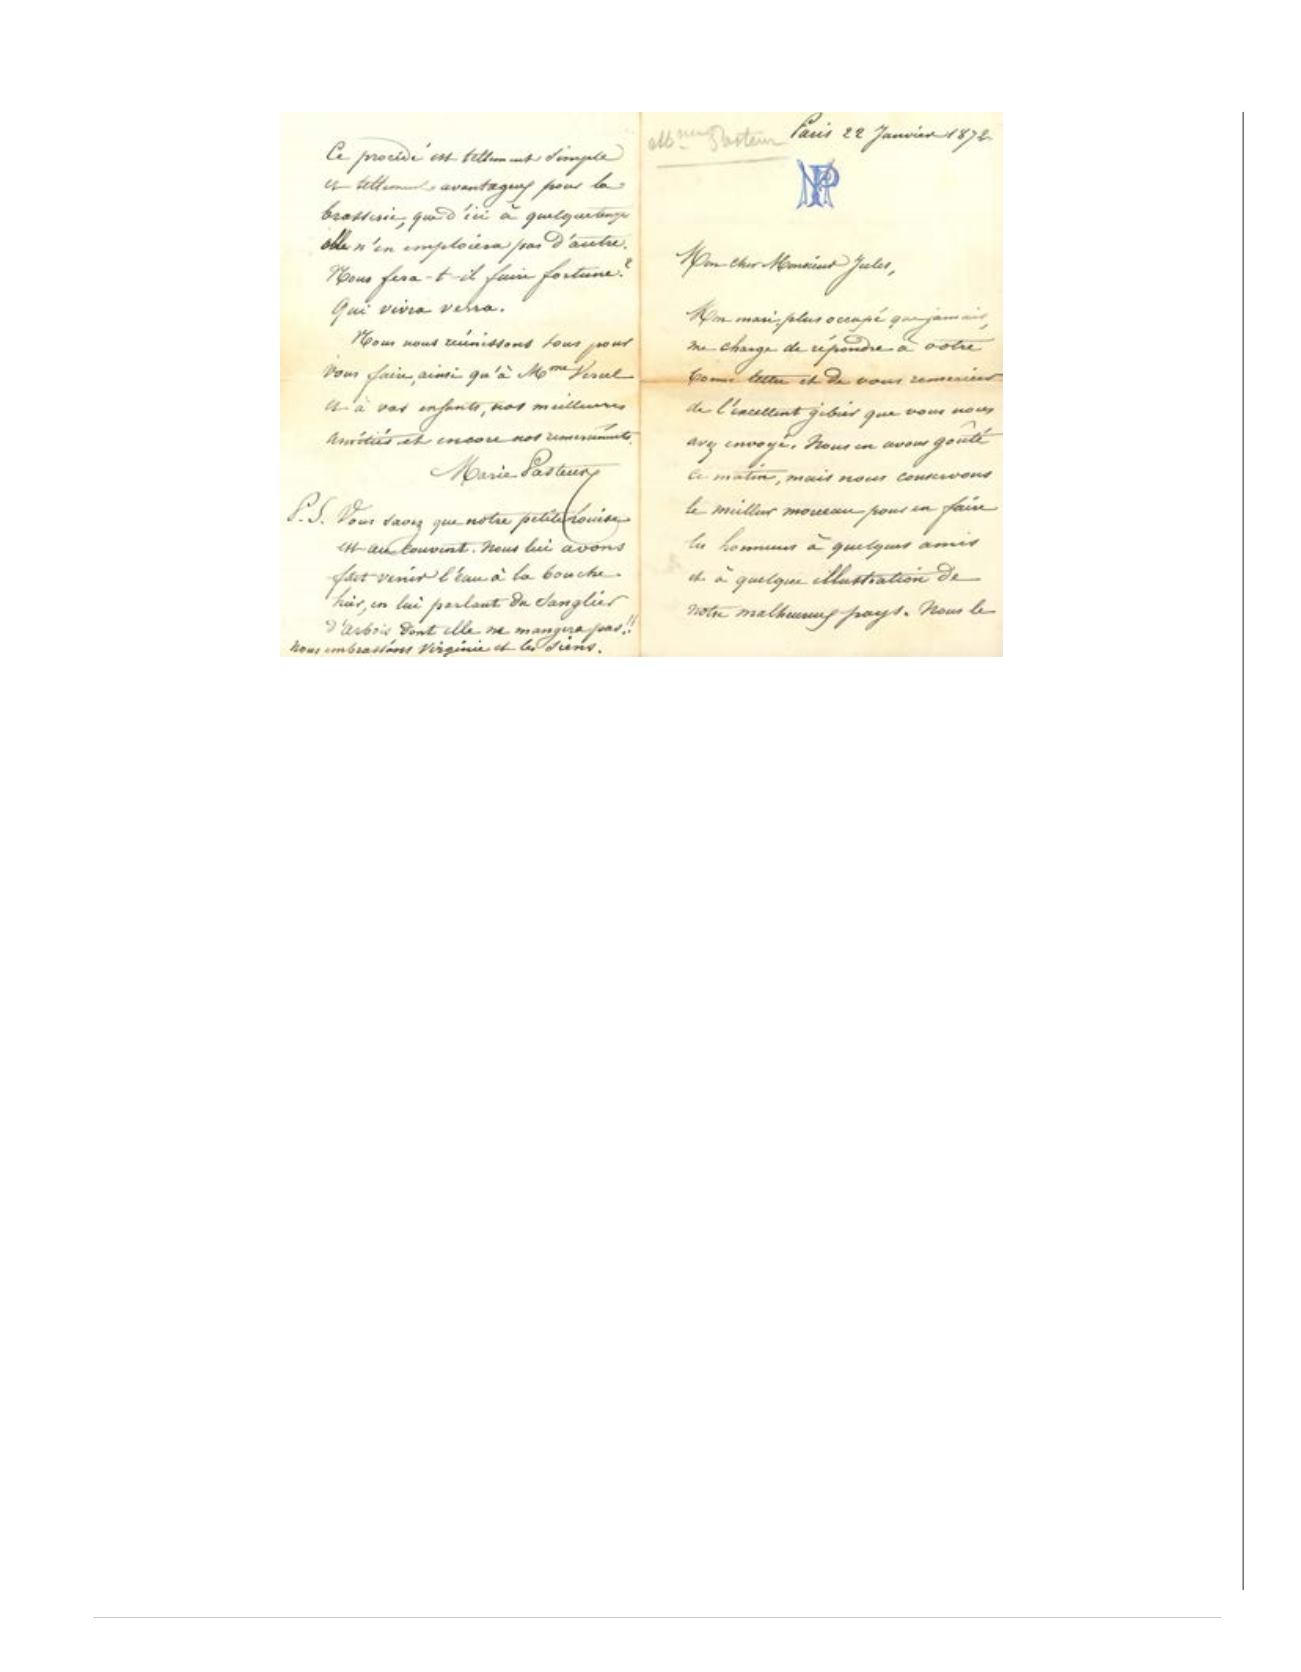 Mme Pasteur
Paris 22 Janvier 1872
MP
Mon cher Monsieur Jules,
Mon mari, plus occupé que jamais,
me charge de répondre à votre
bonne lettre et de vous remercier
de l'excellent gibier que vous nous
avez envoyé. Nous en avons goûté
ce matin, mais nous conservons
le meilleur morceau pour en faire
les honneurs à quelques amis
et à quelque illustration de
notre malheureux pays. Nous le
Ce procédé est tellement simple
et tellement avantageux pour la
brasserie, que d'ici à quelque temps
elle n'en emploiera pas d'autre.
Nous fera-t-il faire fortune?
Qui vivra verra.
Nous nous réunissons tous pour
vous faire, ainsi qu'à Mme Vercel
et à vos enfants, nos meilleures
amitiés et encore nos remerciements.
Marie Pasteur
P.S. Vous savez que notre petite Louise
est au couvent. Nous lui avons
fait venir l'eau à la bouche
hier, en lui parlant du sanglier
d'Arbois dont elle ne mangera pas!!
Nous embrassons Virginie et les siens.